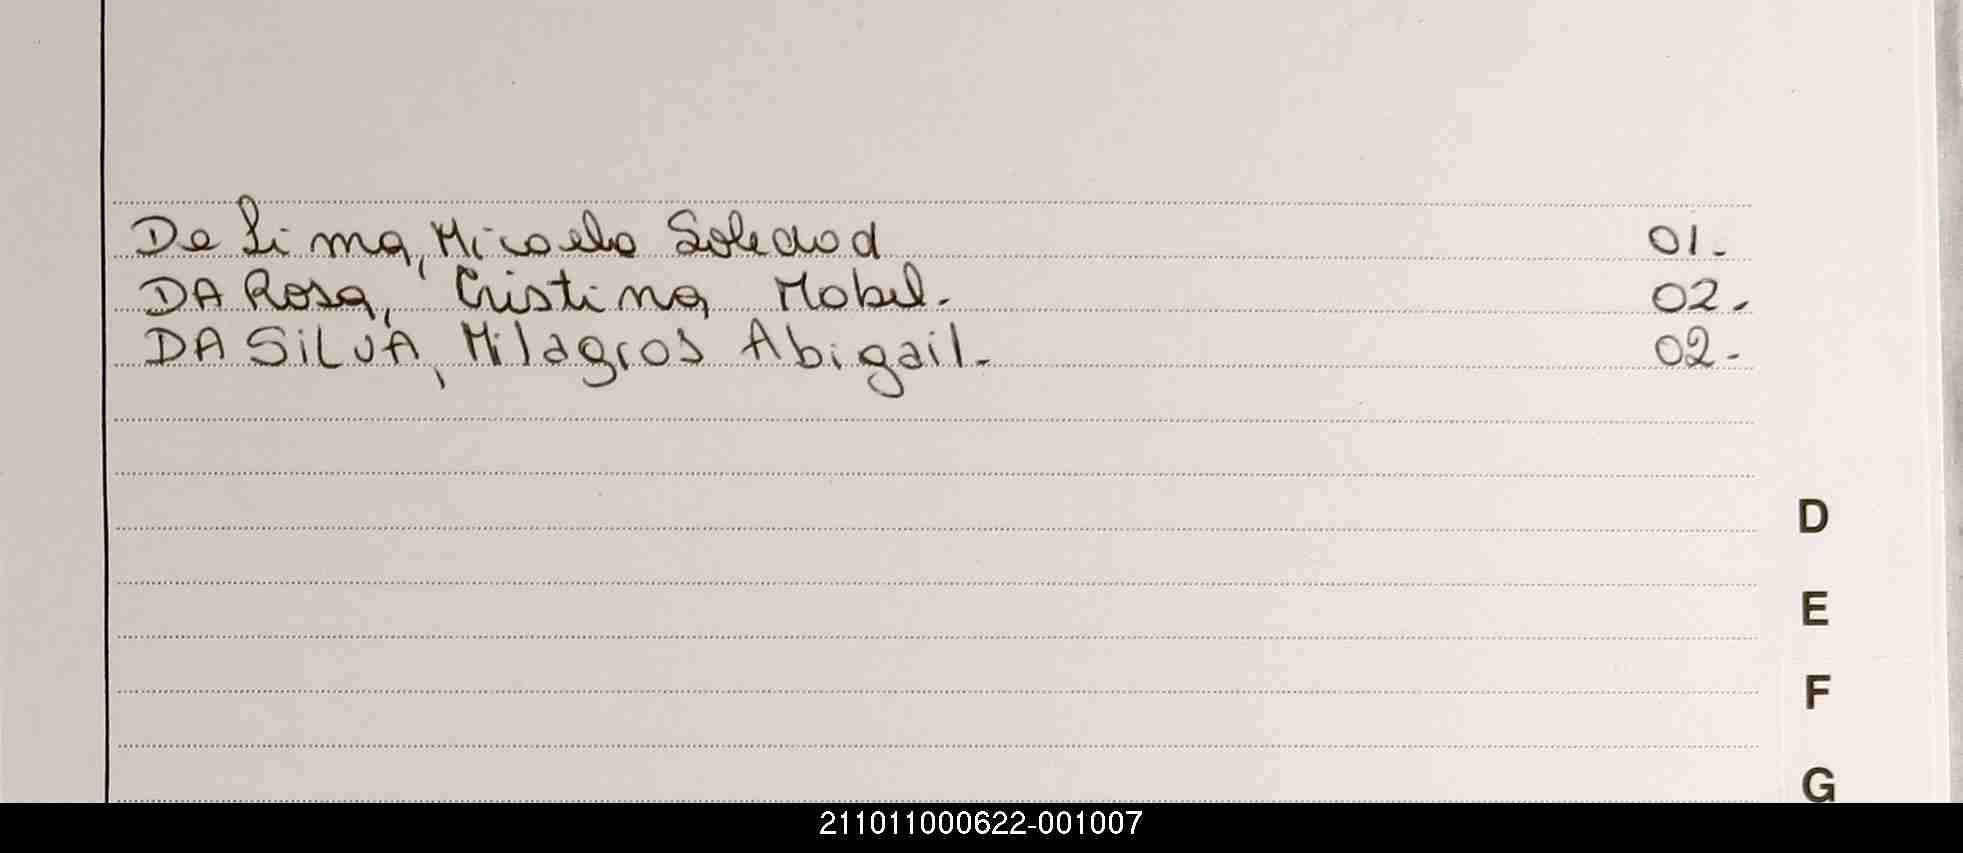 De Lima, Micaela Soledad 01-
DA Rosa, Cristina Mabel. 02-
DA SiLVA, Milagros Abigail- 02-
D
E
F
G
211011000622-001007